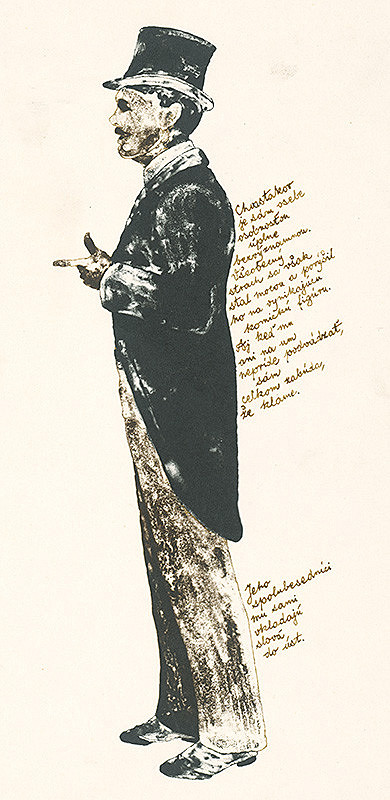 Chvastakov
je sám osebe
osobnosťou
úplne
bezvýznamnou.
Všeobecný
strach sa však
stal mocou a povýšil
ho na vynikajúcu
komickú figúru.
Aj keď mu
ani na um
nepríde podvádzať,
sám
celkom zabúda,
že klame.
Jeho
spolubesedníci
mu sami
vkladajú
slová
do úst.